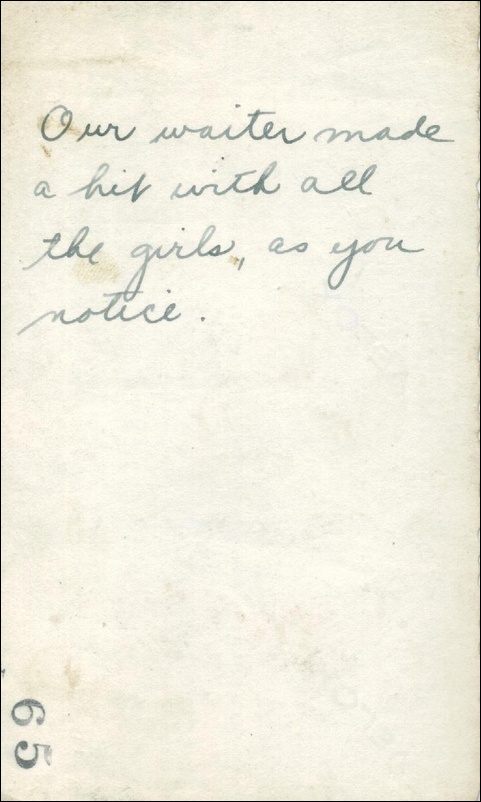 Our waiter made
a hit with all
the girls, as you
notice.
65